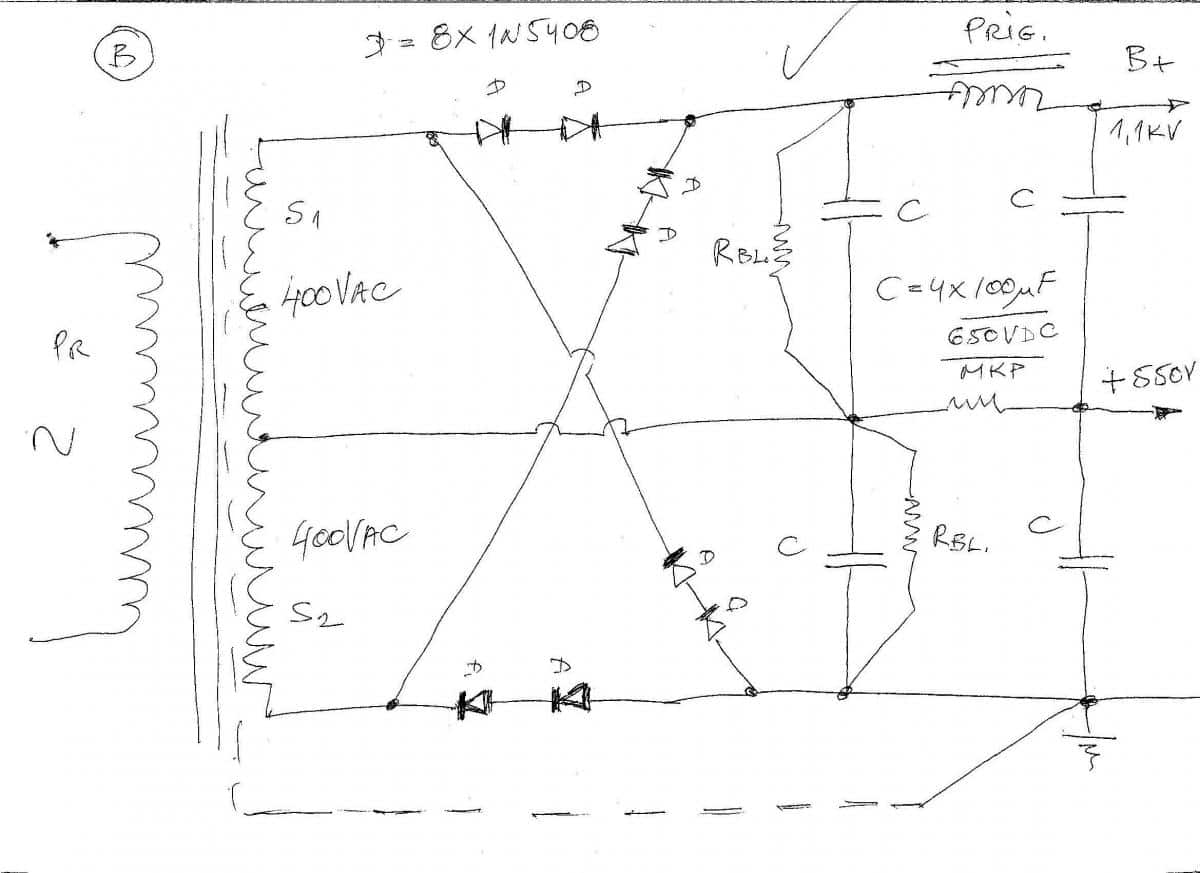 B
D = 8X 1N5408
PRIG.
B+
D D
1,1KV
S1
D
D
C C
RBL.
400VAC
C = 4X100µF
650VDC
MKP
PR
+550V
400VAC
C
D
C
RBL.
D
S2
D D